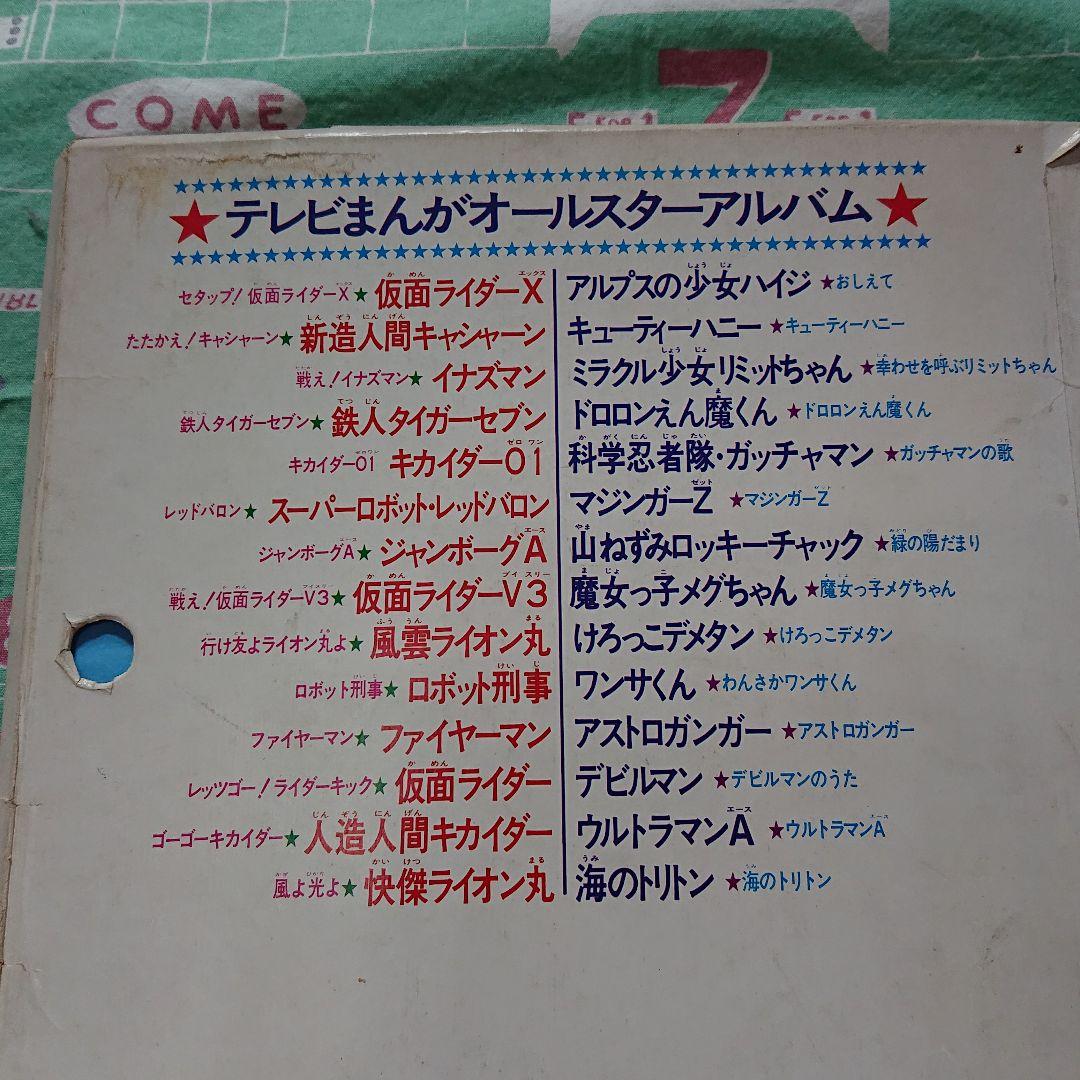 COME
7
★テレビまんがオールスターアルバム★
セタップ!仮面ライダーX★仮面ライダーX
たたかえ!キャシャーン★新造人間キャシャーン
戦え!イナズマン★イナズマン
鉄人タイガーセブン★鉄人タイガーセブン
キカイダー01★キカイダー01
レッドバロン★スーパーロボット・レッドバロン
ジャンボーグA★ジャンボーグA
戦え!仮面ライダーV3★仮面ライダーV3
行け友よライオン丸よ★風雲ライオン丸
ロボット刑事★ロボット刑事
ファイヤーマン★ファイヤーマン
レッツゴー!ライダーキック★仮面ライダー
ゴーゴーキカイダー★人造人間キカイダー
風よ光よ★快傑ライオン丸
アルプスの少女ハイジ★おしえて
キューティーハニー★キューティーハニー
ミラクル少女リミットちゃん★幸わせを呼ぶリミットちゃん
ドロロンえん魔くん★ドロロンえん魔くん
科学忍者隊・ガッチャマン★ガッチャマンの歌
マジンガーZ★マジンガーZ
山ねずみロッキーチャック★緑の陽だまり
魔女っ子メグちゃん★魔女っ子メグちゃん
けろっこデメタン★けろっこデメタン
ワンサくん★わんさかワンサくん
アストロガンガー★アストロガンガー
デビルマン★デビルマンのうた
ウルトラマンA★ウルトラマンA
海のトリトン★海のトリトン